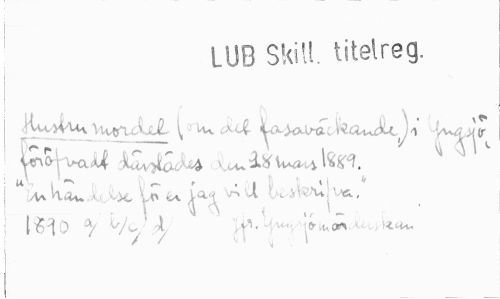 LUB Skill. titelreg.
Hustrumordet (om det fasaväckande,) i Yngsjö,
föröfvadt därstädes den 28 mars 1889.
"En händelse för er jag vill beskrifva."
1890 a/ b/ c/ d/ Jfr. Yngsjömörderskan